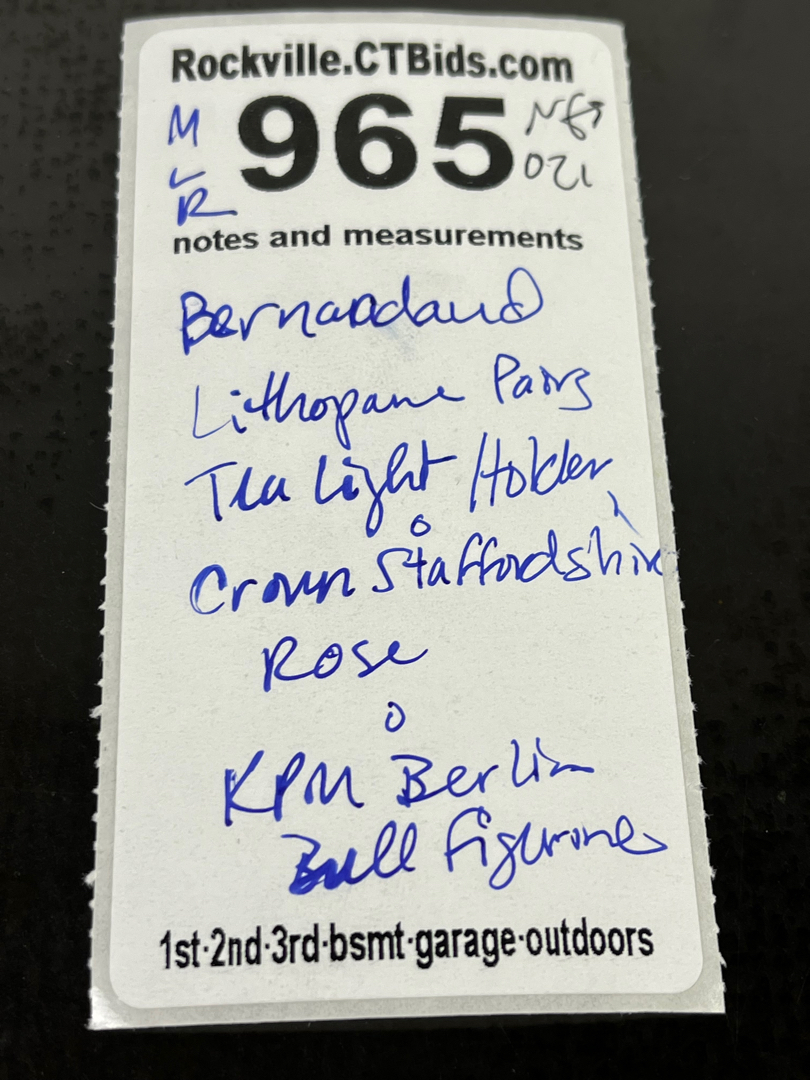 Rockville.CTBids.com
M
L
R
965
021
notes and measurements
Bernardaud
Lithopane Paris
Tea Light Holder
Crown Staffordshire
Rose
KPM Berlin
Bull Figurine
1st·2nd·3rd·bsmt·garage·outdoors